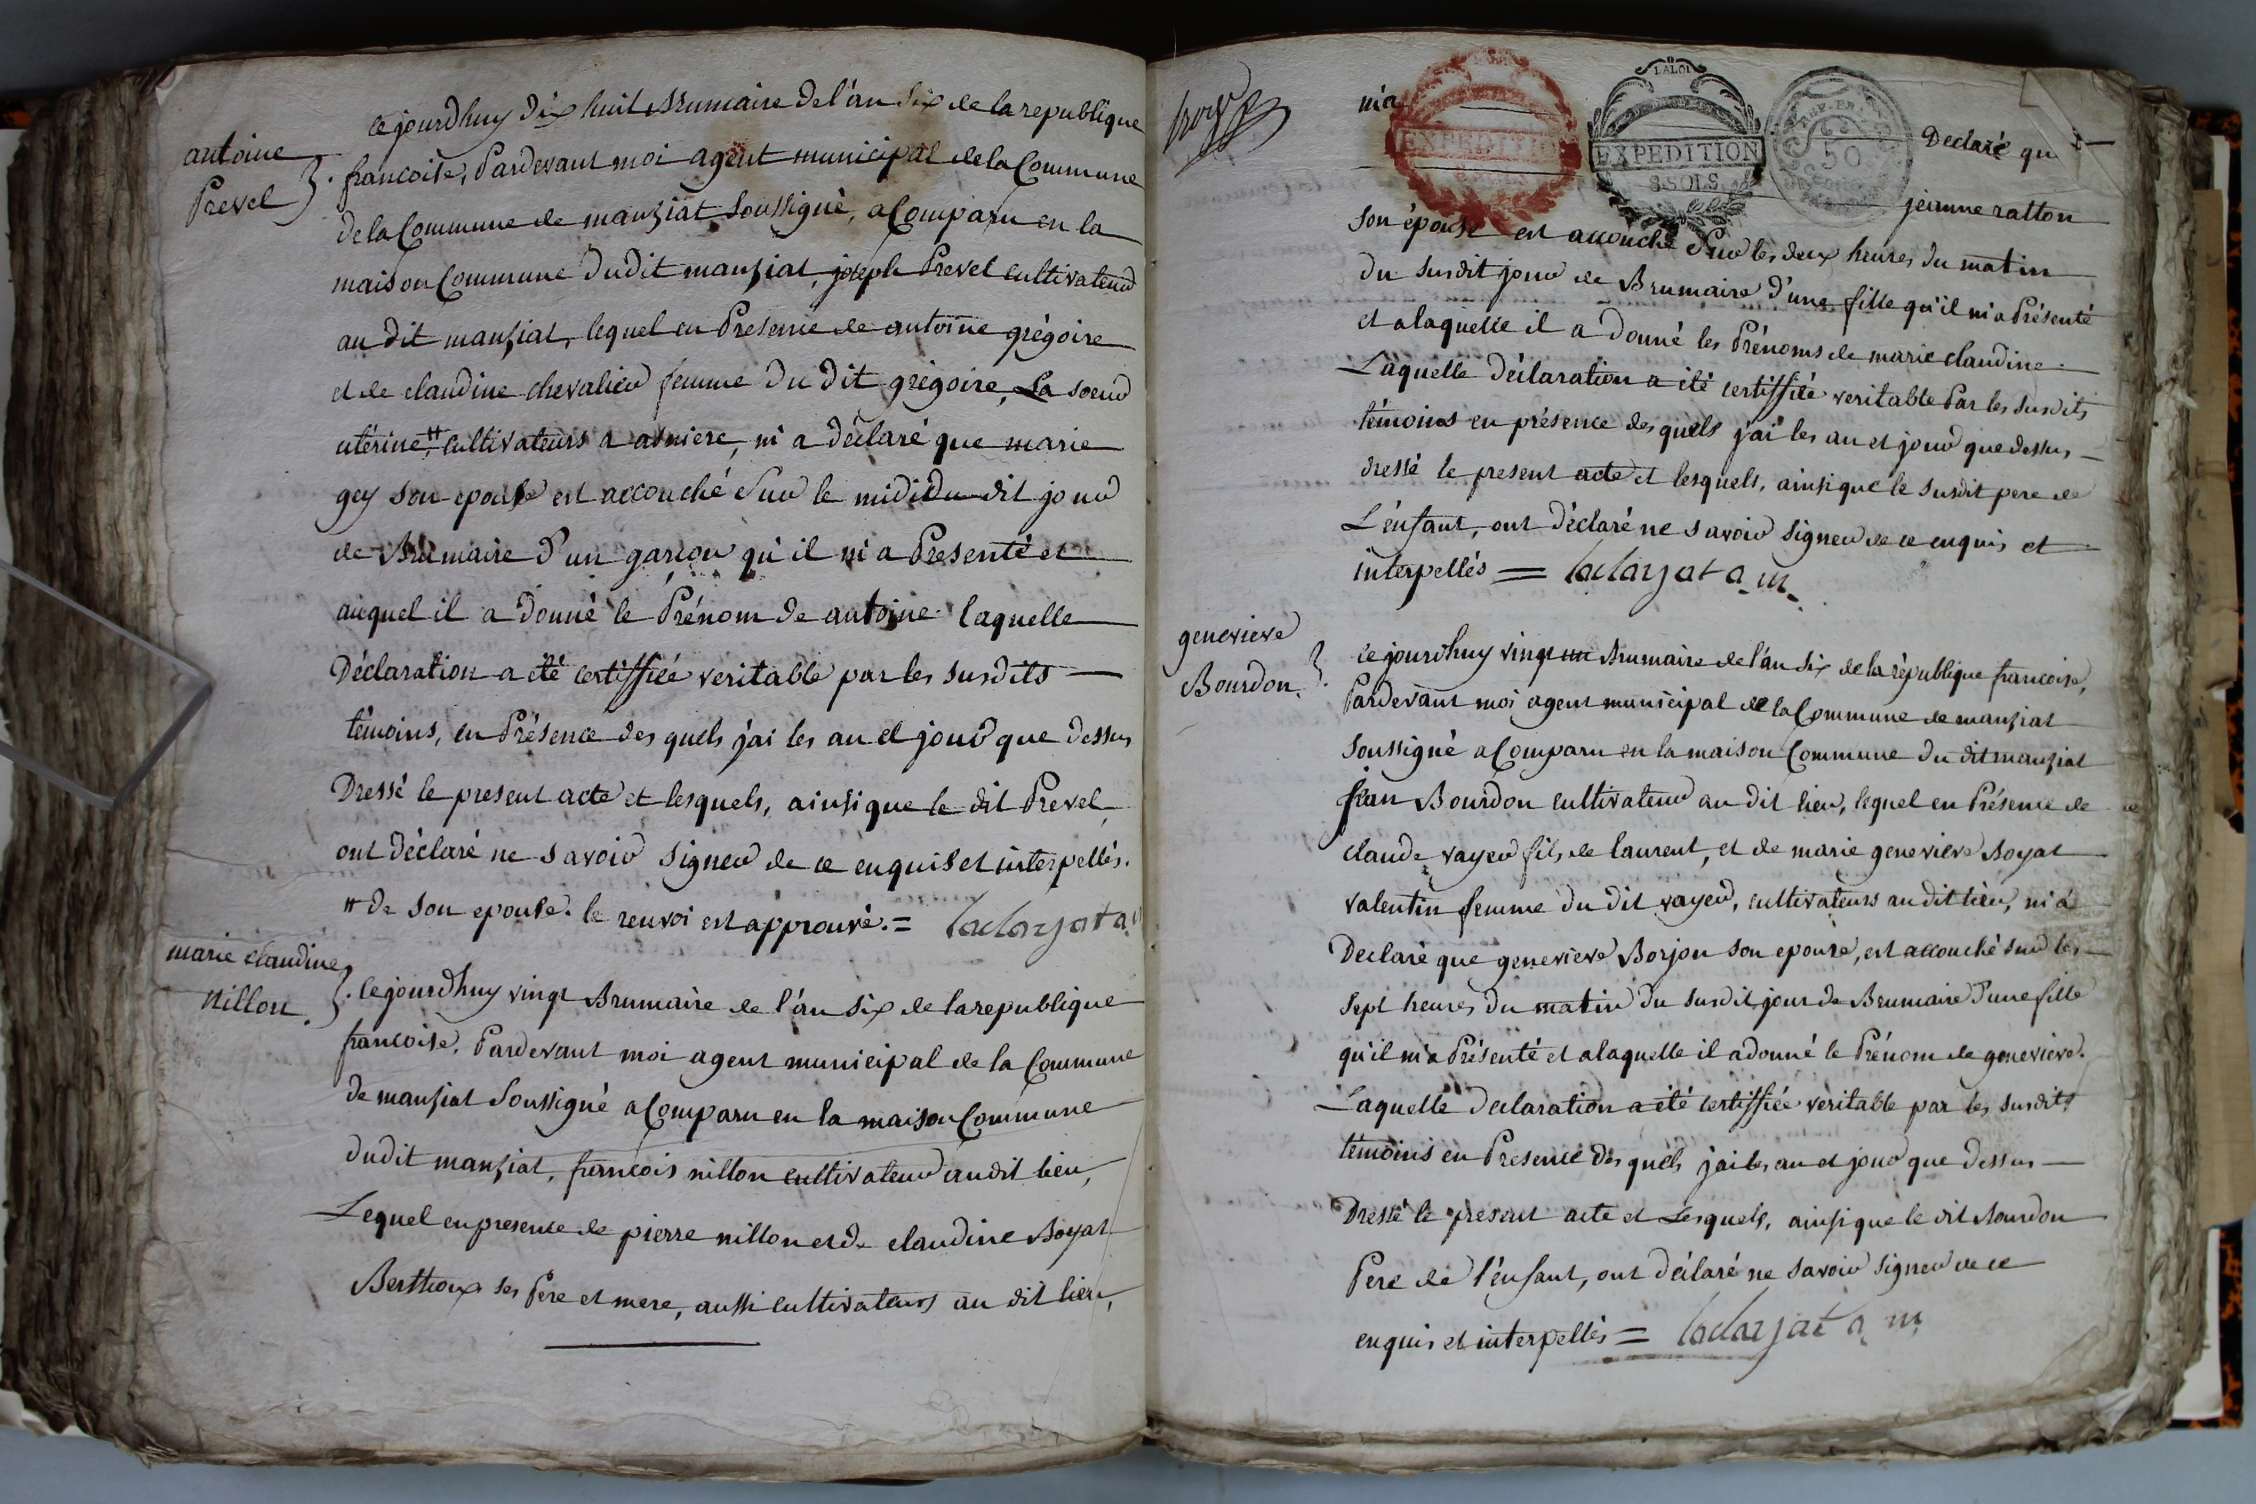 antoine
Prevel
ce jourdhuy dix huit Brumaire de l'an six de la republique
francoise, Pardevant moi agent municipal de la Commune
de la Commune de manziat soussigné, a Comparu en la
maison Commune dudit manziat, joseph Prevel cultivateur
au dit manziat, lequel en Presence de antoine grégoire
et de claudine chevalier femme du dit grégoire, sa soeur
utérine, # cultivateurs a asniere, m'a déclaré que marie
gey son epouse est accouché sur le midi du dit jour
de Brumaire d'un garçon qu'il m'a Presenté et
auquel il a donné le Prénom de antoine. laquelle
Déclaration a été certiffiée veritable par les susdits
témoins, en Présence des quels j'ai les an et jour que dessus
Dressé le present acte et lesquels, ainsi que le dit Prevel
ont déclaré ne savoir signer de ce enquis et interpellés.
# de son epouse. le renvoi est approuvé. =
marie claudine
nillon.
cejourdhuy vingt Brumaire de l'an six de la republique
francoise. Pardevant moi agent municipal de la Commune
de manziat Soussigné a Comparu en la maison Commune
dudit manziat, francois nillon cultivateur audit lieu,
Lequel en presence de pierre nillon et de claudine Boyat
Berthoux ses Pere et mere, aussi cultivateurs au dit lieu,
m'a
EXPEDITION
LA LOI
EXPEDITION
3 SOLS
50
Declaré que
jeanne ratton
son épouse est accouché Sur les deux heures du matin
du susdit jour de Brumaire d'une fille qu'il m'a Présenté
et alaquelle il a donné les Prénoms de marie claudine.
Laquelle déclaration a été certiffiée veritable Par les susdits
témoins en présence des quels j'ai les an et jour que dessus
dressé le present acte et lesquels, ainsi que le susdit pere de
L'enfant, ont déclaré ne savoir signer de ce enquis et
interpellés = a. m.
genevieve
Bourdon.
ce jourdhuy vingt un Brumaire de l'an six de la république francoise,
Pardevant moi agent municipal de la Commune de manziat
Soussigné a Comparu en la maison Commune du dit manziat
jean Bourdon cultivateur au dit lieu, lequel en Présence de
claude vayer fils de laurent, et de marie genevieve Boyat
valentin femme du dit vayer, cultivateurs audit lieu, m'a
Declaré que genevieve Borjon son epouse, est accouché sur les
sept heures du matin du susdit jour de Brumaire d'une fille
qu'il m'a Présenté et alaquelle il a donné le Prénom de genevieve.
Laquelle declaration a été certiffiée veritable par les susdits
témoins en Presence des quels j'ai les an et jour que dessus
Dressé le présent acte et Lesquels, ainsi que le dit Bourdon
Pere de l'enfant, ont déclaré ne savoir signer de ce
enquis et interpellés = a. m